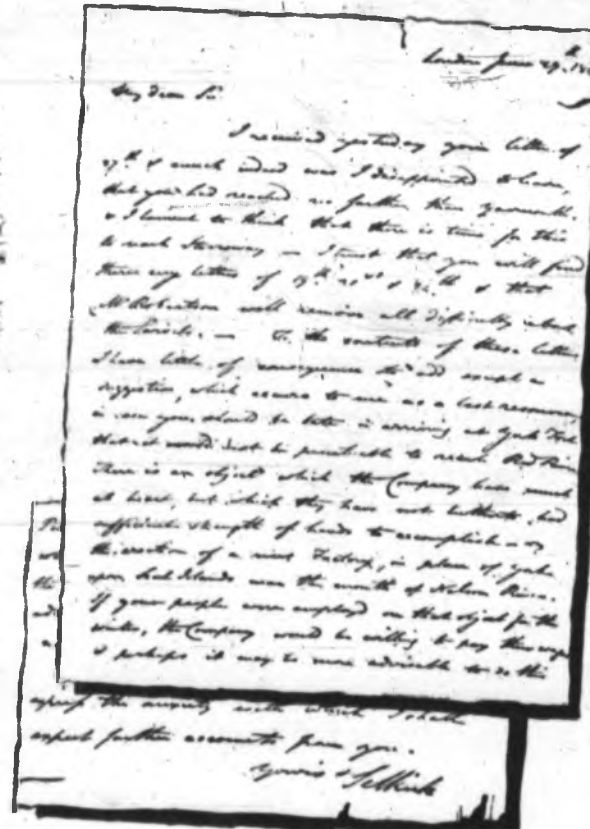 London June 29th 18
My dear Sir
I received yesterday your letter of
27th & much indeed was I disappointed to learn,
that you had reached no further than Yarmouth.
& I lament to think that there is time for this
to reach Stornoway — I trust that you will find
there my letters of 19th 21st & 24th & that
Mr Robertson will remove all difficulty about
the — To the contents of these letters
I have little of consequence to add except a
suggestion, which occurs to me as a last resource
in case you should be late in arriving at York Fort
that it would not be practicable to reach Red River
There is an object which the Company have much
at heart, but which they have not hitherto had
sufficient strength of hands to accomplish — viz
the erection of a new Factory, in place of York
upon near the mouth of Nelson River.
If your people were employed on that object for the
winter, the Company would be willing to pay their wages
& perhaps it may be more advisable to do this
express the anxiety with which I shall
expect further accounts from you.
Yours &c Selkirk